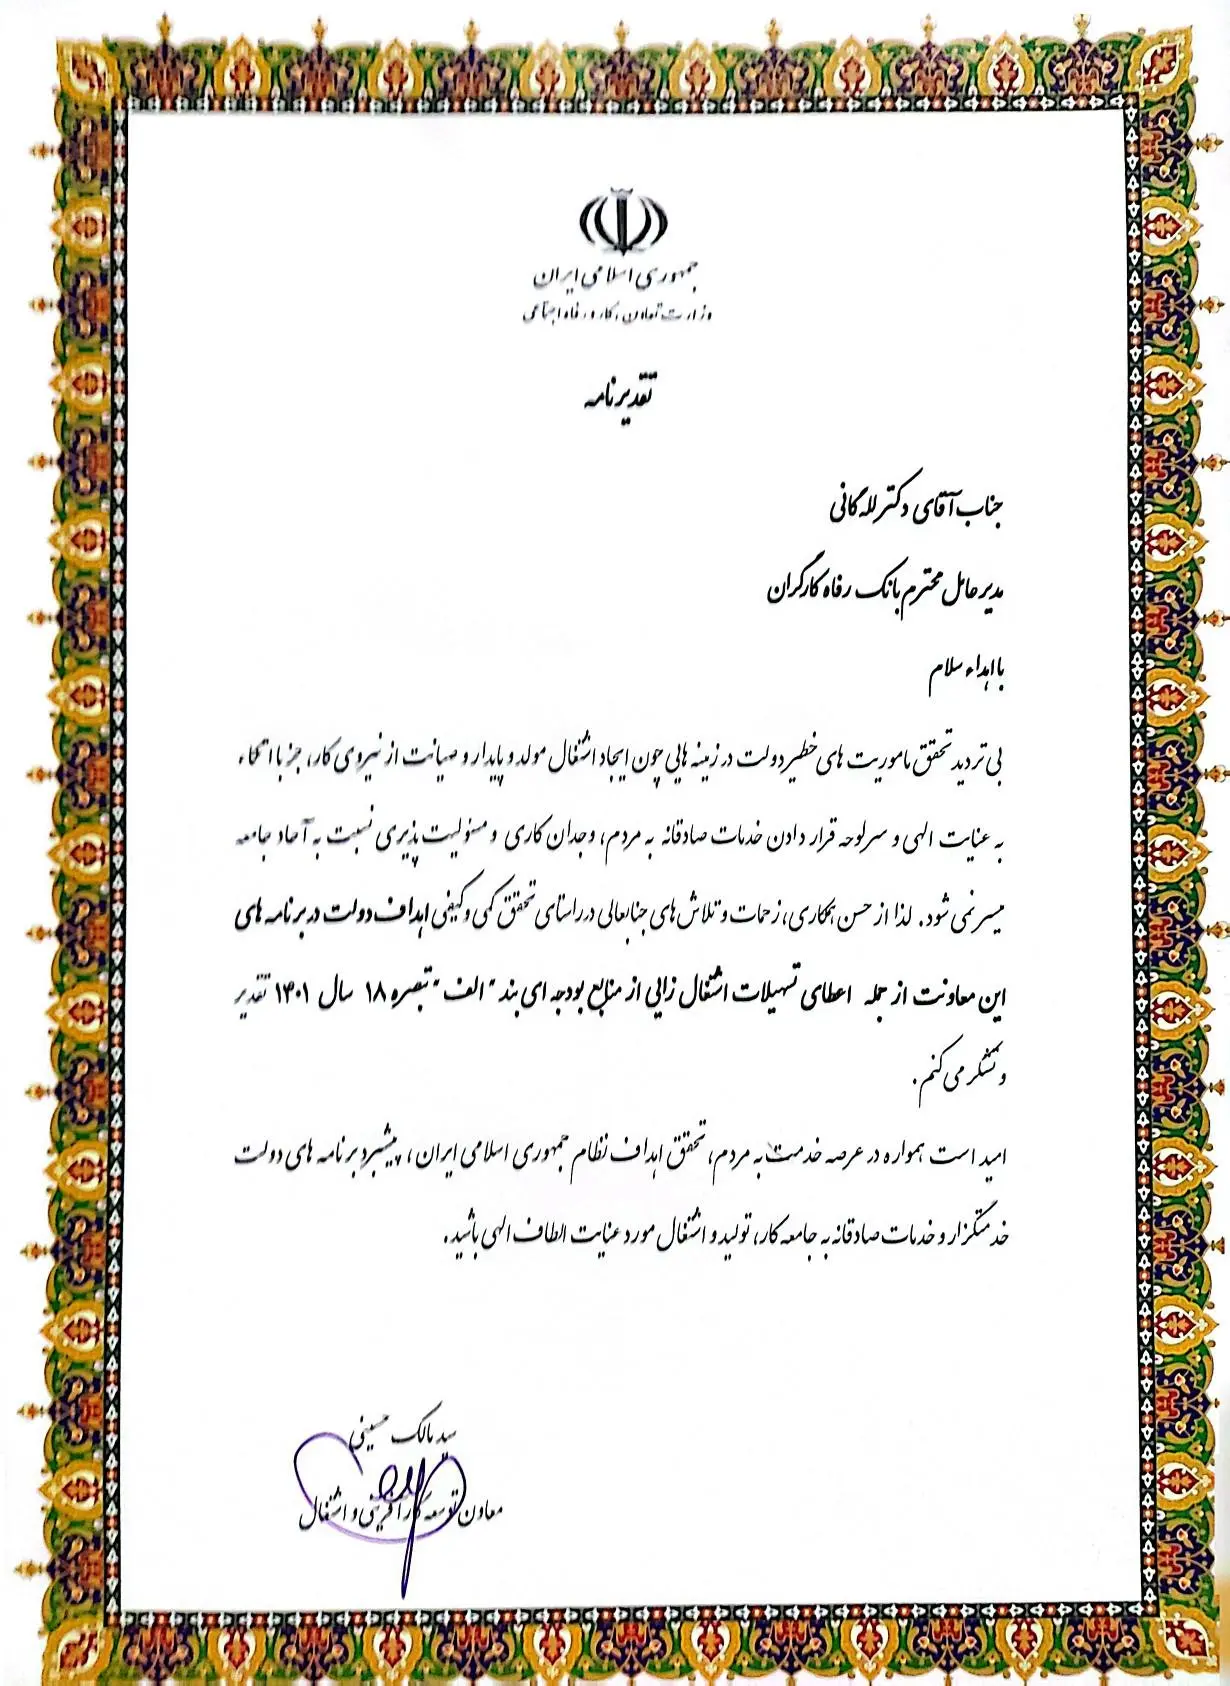 جمهوری اسلامی ایران
وزارت تعاون، کار و رفاه اجتماعی
تقدیرنامه
جناب آقای دکتر لله گانی
مدیرعامل محترم بانک رفاه کارگران
با اهداء سلام
بی تردید تحقق ماموریت های خطیر دولت در زمینه هایی چون ایجاد اشتغال مولد و پایدار و صیانت از نیروی کار، جز با اتکاء
به عنایت الهی و سرلوحه قرار دادن خدمات صادقانه به مردم، وجدان کاری و مسئولیت پذیری نسبت به آحاد جامعه
میسر نمی شود. لذا از حسن همکاری، زحمات و تلاش های جنابعالی در راستای تحقق کمی و کیفی اهداف دولت در برنامه های
این معاونت از جمله اعطای تسهیلات اشتغال زایی از منابع بودجه ای بند "الف" تبصره ۱۸ سال ۱۴۰۱ تقدیر
و تشکر می کنم.
امید است همواره در عرصه خدمت به مردم، تحقق اهداف نظام جمهوری اسلامی ایران، پیشبرد برنامه های دولت
خدمتگزار و خدمات صادقانه به جامعه کار، تولید و اشتغال مورد عنایت الطاف الهی باشید.
سید مالک حسینی
معاون توسعه کارآفرینی و اشتغال